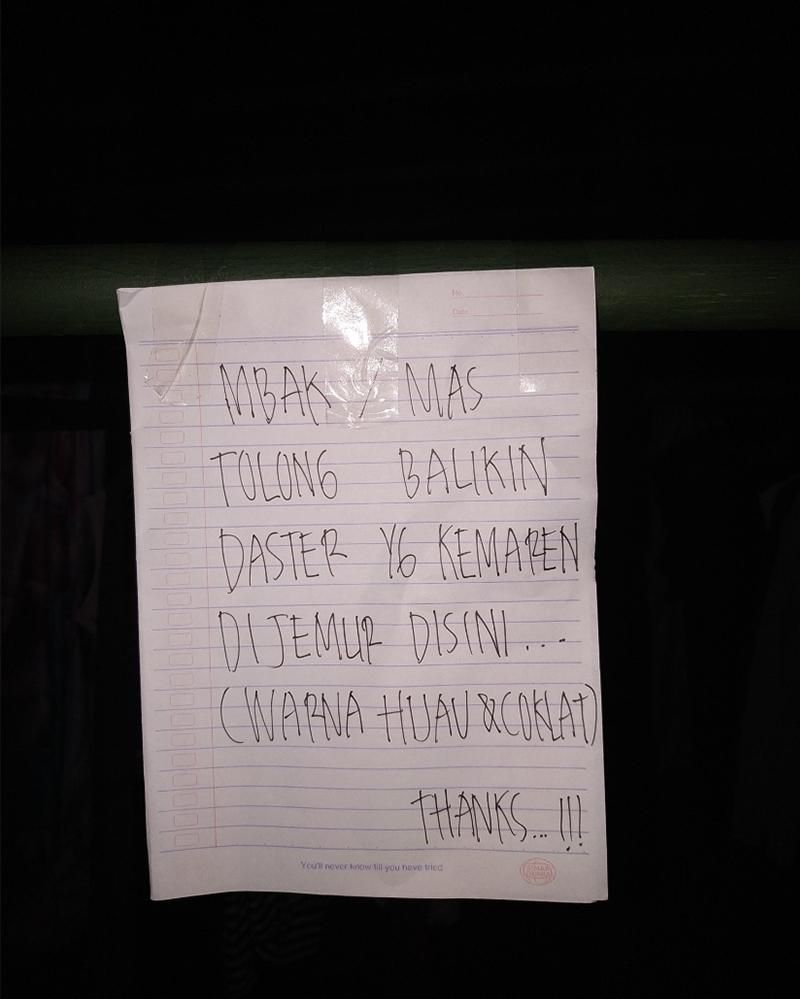 No.
Date
MBAK / MAS
TOLONG BALIKIN
DASTER YG KEMAREN
DIJEMUR DISINI...
(WARNA HIJAU & COKLAT)
THANKS... !!!
You'll never know till you have tried
SINAR DUNIA